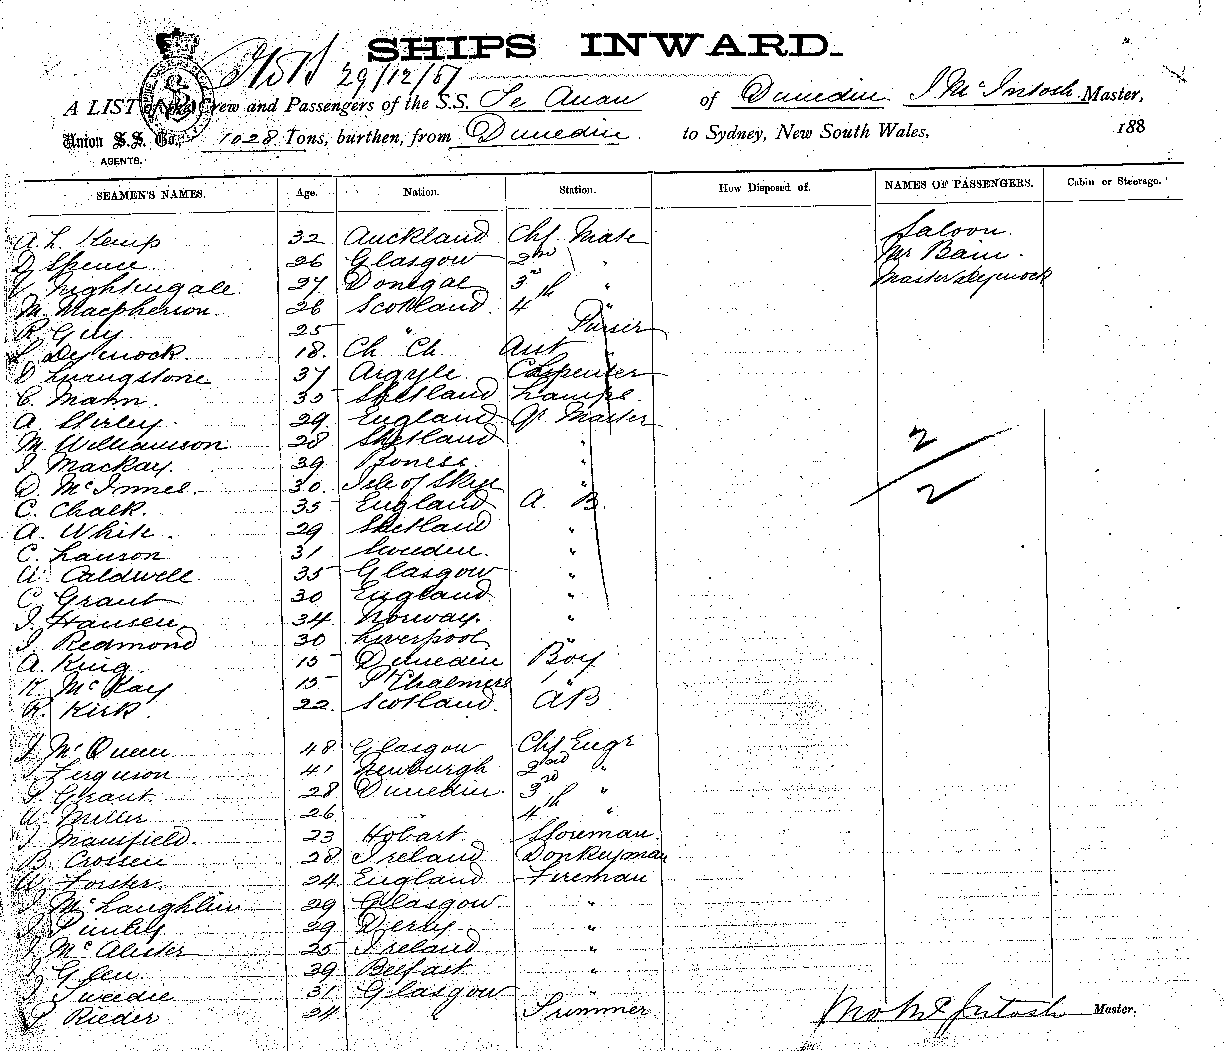 SHIPS INWARD.
29/12/87
A LIST of the Crew and Passengers of the S.S. Te Anau of Dunedin J Mc Intosh Master,
Union S.S. Co., 1028 Tons, burthen, from Dunedin to Sydney, New South Wales, 188
AGENTS.
SEAMEN'S NAMES. Age. Nation. Station. How Disposed of. NAMES OF PASSENGERS. Cabin or Steerage.
Saloon.
A. L. Kemp 32 Auckland Chf Mate
Mr Bain.
D. Spence 26 Glasgow 2nd "
Master Deymock
Nightingale 27 Donegal 3rd "
M. Macpherson 26 Scotland 4th "
R. Guy 25 " Purser
Deymock 18. Ch Ch Asst "
Livingstone 37 Argyle Carpenter
C. Mann. 35 Shetland Lamps.
A. Shirley 29 England Qr Master
M. Williamson 28 Shetland "
2
J. Mackay 39 Boness. "
D. McInnes 30. Isle of Skye "
2
C. Chalk. 35 England A B.
A. White. 29 Shetland "
C. Lauson 31 Sweden. "
W. Caldwell 35 Glasgow "
C. Grant 30 England "
J. Hansen 34 Norway. "
J. Redmond 30 Liverpool "
A. King 15 Dunedin Boy
K. McKay 15 Pt Chalmers "
R. Kirk. 22. Scotland. AB
J. McQueen 48 Glasgow Chf Engr
J. Ferguson 41 Newburgh 2nd "
J. Grant 28 Dunedin. 3rd "
W. Miller 26 " 4th "
J. Mansfield. 23 Hobart Storeman.
B. Crossen 28 Ireland Donkeyman
W. Forster. 24 England Fireman
J. McLaughlin 29 Glasgow "
29 Derby "
J. McAlister 25 Ireland "
J. Glen. 39 Belfast "
J. Tweedie 31 Glasgow "
Rieder 24 " Trimmer
Jno McIntosh Master.